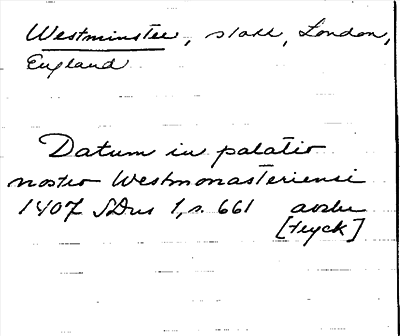 Westminster, stadt, London,
England
Datum in palatio
nostro Westmonasteriensi
1407 SDns 1, s. 661 avskr
[tryck]